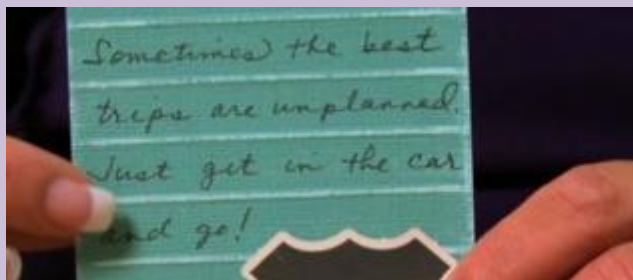 Sometimes the best
trips are unplanned.
Just get in the car
and go!